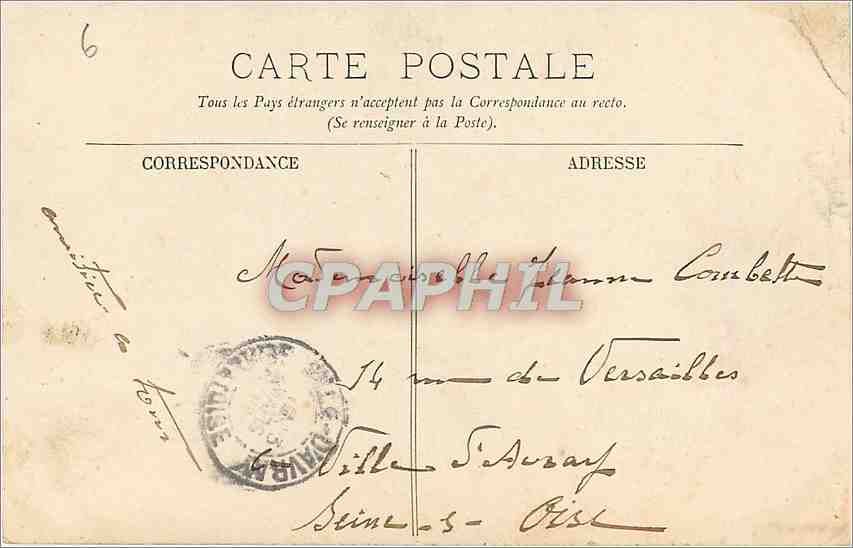 6
CARTE POSTALE
Tous les Pays étrangers n'acceptent pas la Correspondance au recto.
(Se renseigner à la Poste).
CORRESPONDANCE
ADRESSE
amitiés à tous
Mademoiselle Jeanne Combette
CPAPHIL
14 rue de Versailles
à Ville d'Avray
Seine-&-Oise
VILLE-D'AVRAY
OISE